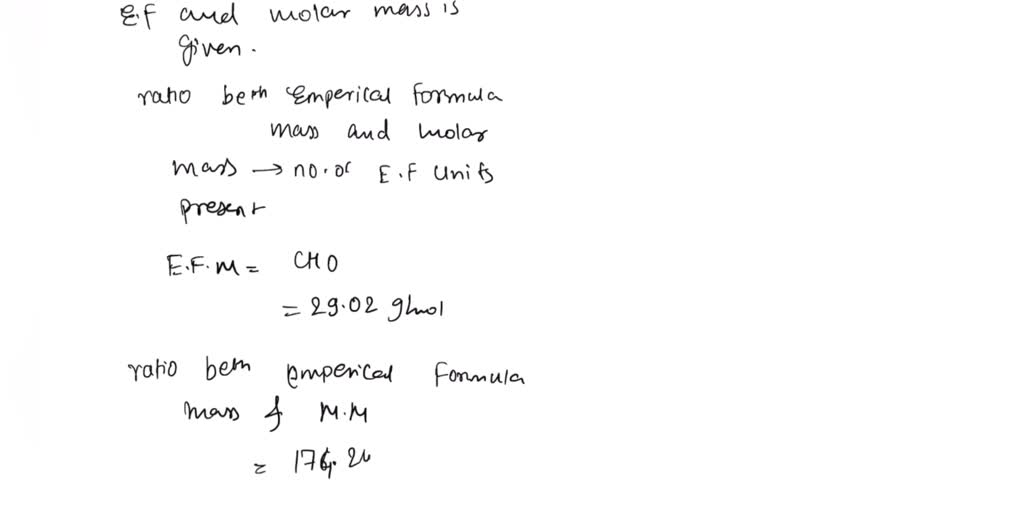 E.F and molar mass is
given.
ratio betn Emperical formula
mass and molar
mass → no. of E.F Units
present
E.F.M = CHO
= 29.02 g/mol
ratio betn emperical Formula
mass & M.M
=